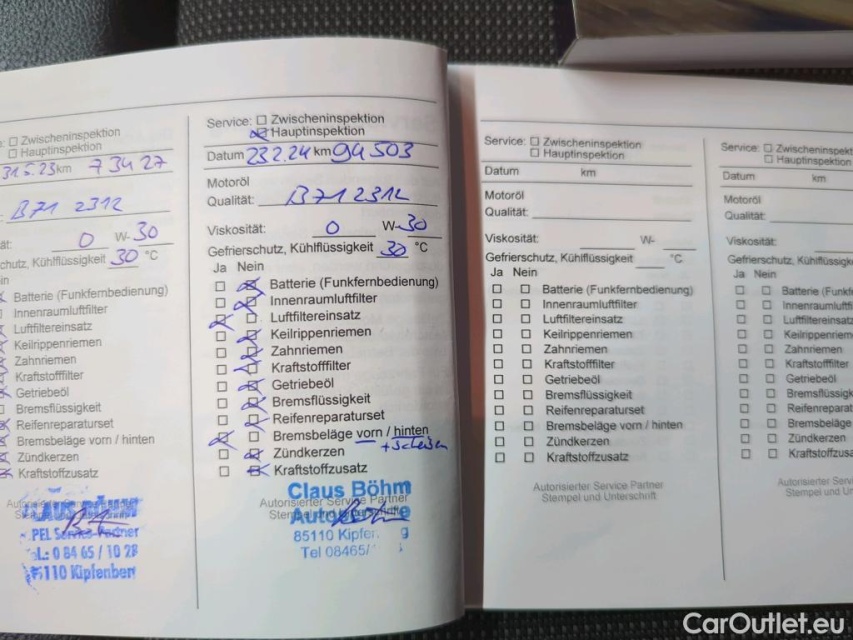 Zwischeninspektion
Hauptinspektion
31.5.23 km 73427
B71 2312
0 W-30
chutz, Kühlflüssigkeit 30 °C
Batterie (Funkfernbedienung)
Innenraumluftfilter
Luftfiltereinsatz
Keilrippenriemen
Zahnriemen
Kraftstofffilter
Getriebeöl
Bremsflüssigkeit
Reifenreparaturset
Bremsbeläge vorn / hinten
Zündkerzen
Kraftstoffzusatz
CLAUS BÖHM
L: 0 84 65 / 10 28
110 Kipfenberg
Service: Zwischeninspektion
Hauptinspektion
Datum 23.2.24 km 94503
Motoröl
Qualität: B71 2312
Viskosität: 0 W-30
Gefrierschutz, Kühlflüssigkeit 30 °C
Ja Nein
Batterie (Funkfernbedienung)
Innenraumluftfilter
Luftfiltereinsatz
Keilrippenriemen
Zahnriemen
Kraftstofffilter
Getriebeöl
Bremsflüssigkeit
Reifenreparaturset
Bremsbeläge vorn / hinten
Zündkerzen
Kraftstoffzusatz
Claus Böhm
Autorisierter Service Partner
85110 Kipfen
Tel 08465/
Service: Zwischeninspektion
Hauptinspektion
Datum km
Motoröl
Qualität:
Viskosität: W-
Gefrierschutz, Kühlflüssigkeit °C
Ja Nein
Batterie (Funkfernbedienung)
Innenraumluftfilter
Luftfiltereinsatz
Keilrippenriemen
Zahnriemen
Kraftstofffilter
Getriebeöl
Bremsflüssigkeit
Reifenreparaturset
Bremsbeläge vorn / hinten
Zündkerzen
Kraftstoffzusatz
Autorisierter Service Partner
Stempel und Unterschrift
Service: Zwischeninspekt
Hauptinspektion
Datum km
Motoröl
Qualität:
Viskosität:
Gefrierschutz, Kühlflüssigke
Ja Nein
Batterie (Funkf
Innenraumluftfil
Luftfiltereinsatz
Keilrippenriemen
Zahnriemen
Kraftstofffilter
Getriebeöl
Bremsflüssigk
Reifenreparat
Bremsbeläge
Zündkerzen
Kraftstoffzusa
Autorisierter Servi
Stempel und Un
CarOutlet.eu